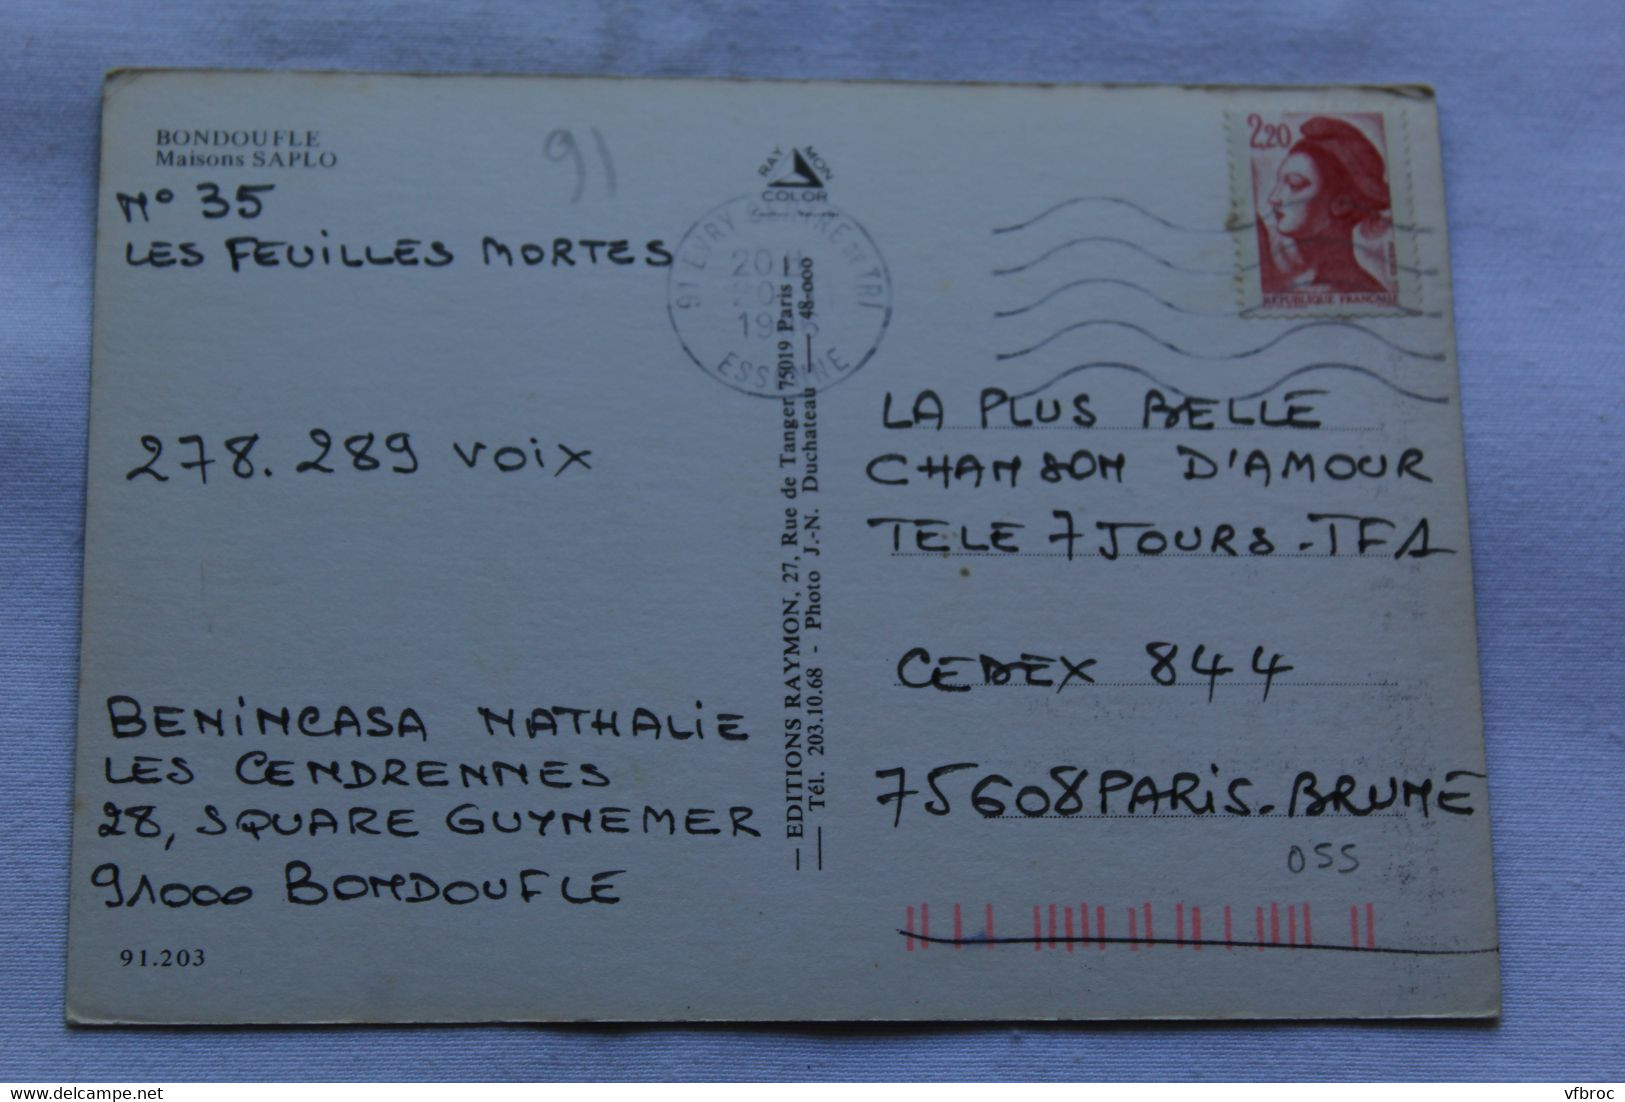 BONDOUFLE
Maisons SAPLO
N° 35
LES FEUILLES MORTES
278.289 voix
BENINCASA NATHALIE
LES CENDRENNES
28, SQUARE GUYNEMER
91000 BONDOUFLE
91.203
91
RAY MON
COLOR
91 EVRY CENTRE DE TRI
20 H
ESSONNE
EDITIONS RAYMON, 27, Rue de Tanger 75019 Paris
Tél. 203.10.68 - Photo J.-N. Duchateau — 48-000
2,20
REPUBLIQUE FRANCAISE
LA PLUS BELLE
CHANSON D'AMOUR
TELE 7 JOURS - TF1
CEDEX 844
75608 PARIS-BRUNE
055
vfbroc